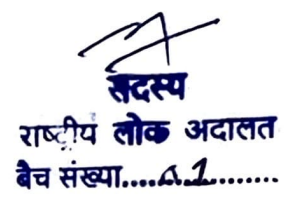 सदस्य
राष्ट्रीय लोक अदालत
बैच संख्या.....01..........